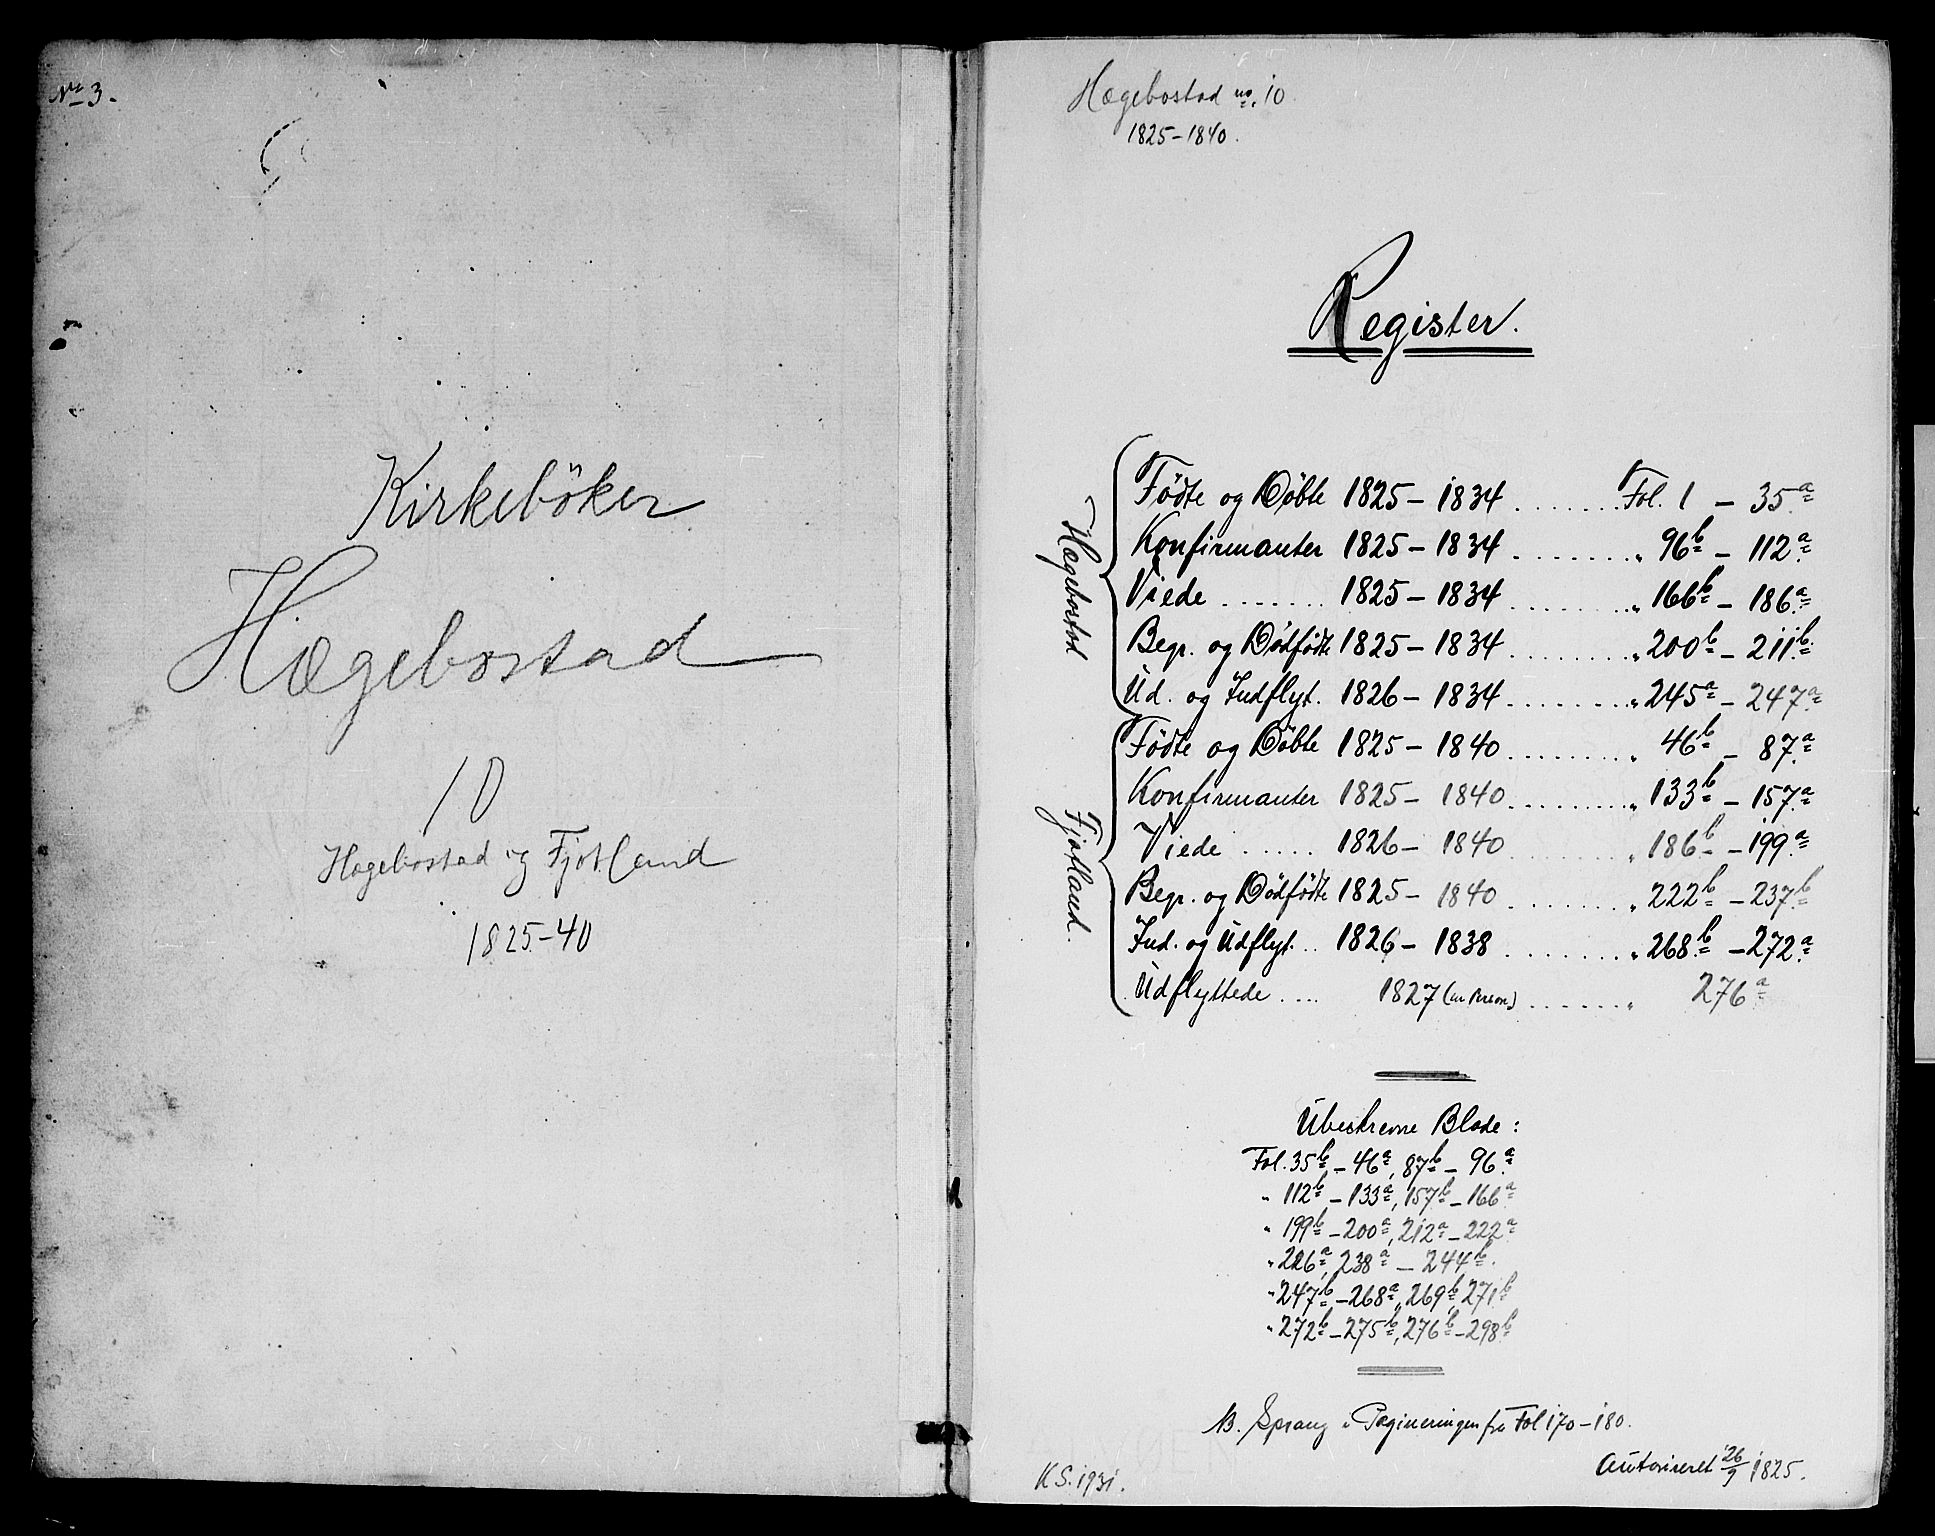 No 3.
Kirkeböker
Hægebostad
10
Hægebostad og Fjotland
1825-40
Hægebostad no. 10
1825-1840.
Register.
Hægebostad
Födte og Döbte 1825-1834 ....... Fol. 1 - 35a
Konfirmanter 1825-1834 ....... " 96b - 112a
Viede ....... 1825-1834 ....... " 166b - 186a
Begr. og Dödfödte 1825-1834 ....... " 200b - 211b
Ud. og Indflyt. 1826-1834 ....... " 245a - 247a
Fjotland.
Födte og Döbte 1825-1840 ....... " 46b - 87a
Konfirmanter 1825-1840 ....... " 133b - 157a
Viede ...... 1826-1840 ....... " 186b - 199a
Begr. og Dödfödte 1825-1840 ....... " 222b - 237b
Ind. og Udflyt. .. 1826-1838 ....... " 268b - 272a
Udflyttede .... 1827 (en Person) ....... " 276a
Ubeskrevne Blade:
Fol. 35b - 46a, 87b - 96a
" 112b - 133a, 157b - 166a
" 199b - 200a, 212a - 222a
" 226a, 238a - 244b.
" 247b - 268a, 269b, 271b
" 272b - 275b, 276b - 298b
NB. Sprang i Pagineringen fra Fol 170-180.
Autoriseret 26/9 1825.
K S. 1931.